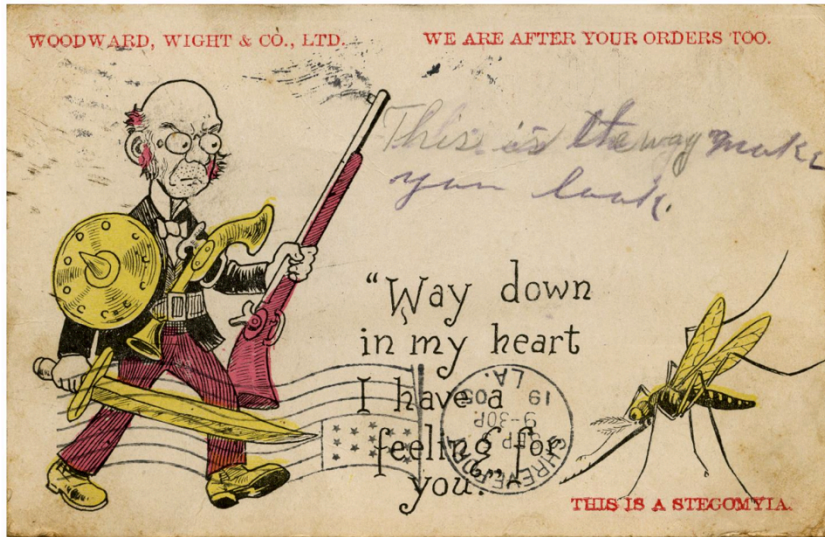 WOODWARD, WIGHT & CO., LTD.
WE ARE AFTER YOUR ORDERS TOO.
This is the way make
you look.
“Way down
in my heart
I have a
feeling for
you.”
LA.
19 05
9-30P
SHREVEPORT
THIS IS A STEGOMYIA.